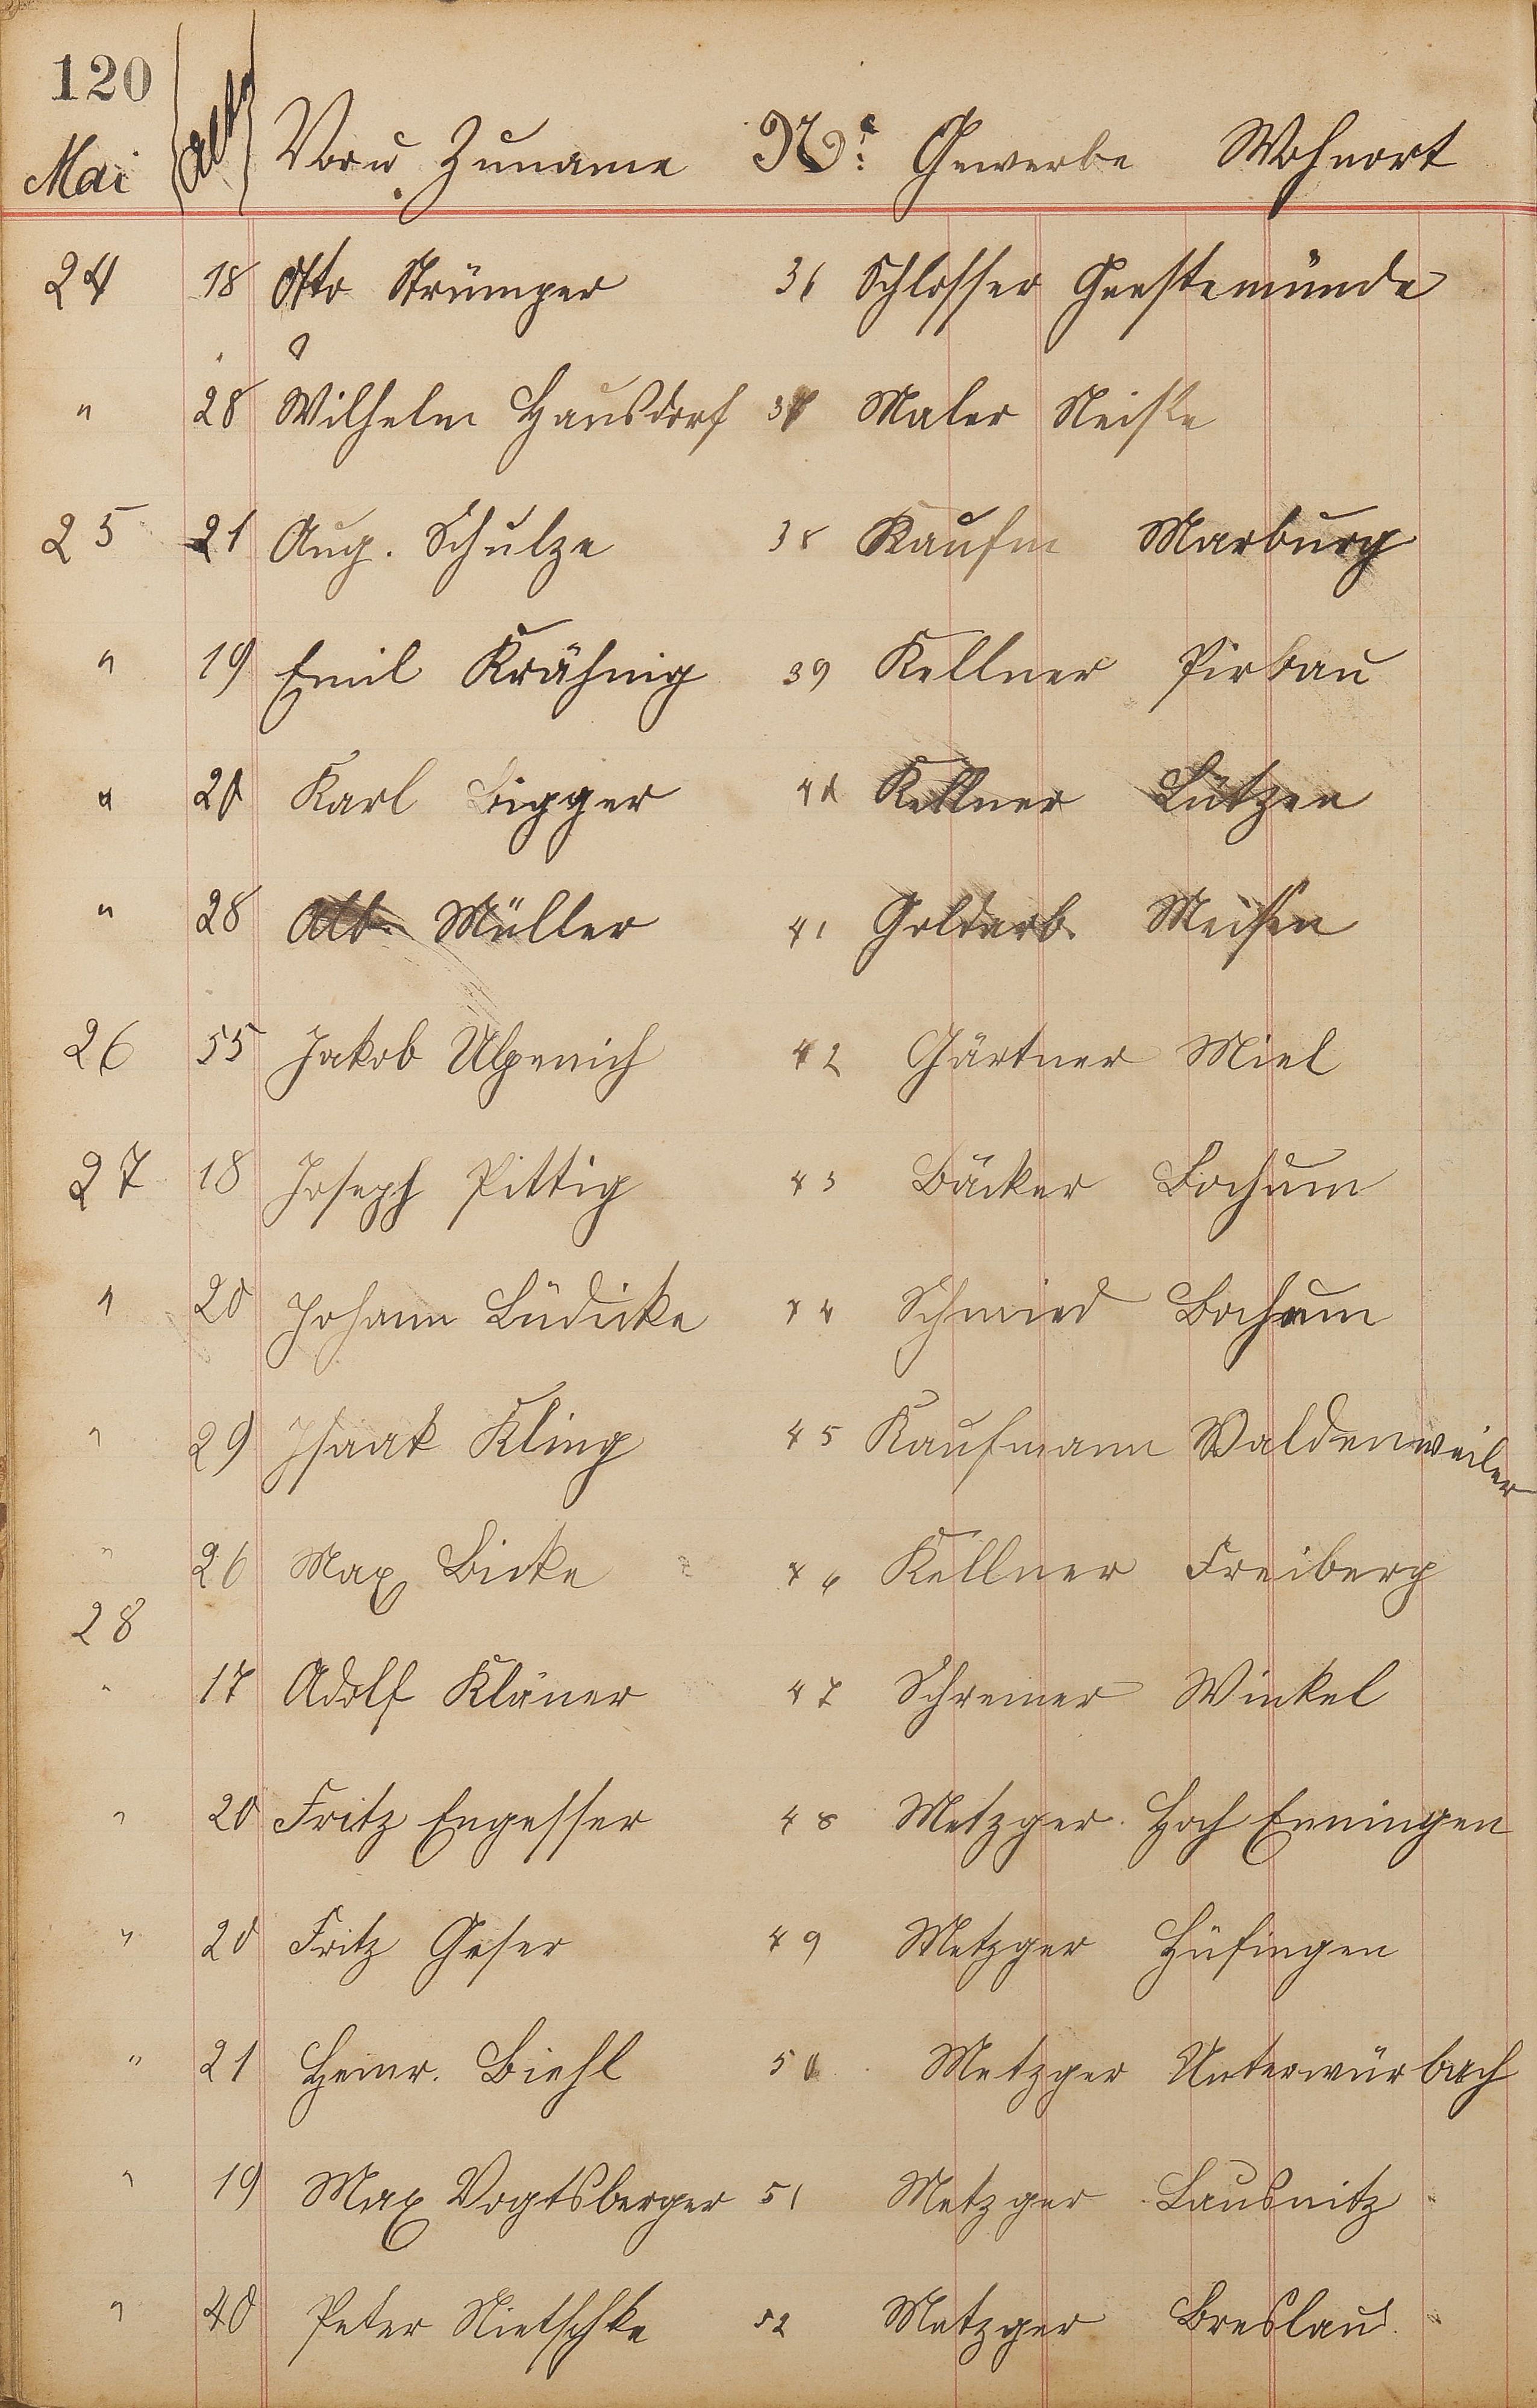 120
Mai Alt. Vor u. Zuname No. Gewerbe Wohnort
24 18 Otto Strümper 36 Schlosser Geestemünde
" 28 Wilhelm Hausdorf 37 Maler Neiße
25 21 Aug. Schulze 38 Kaufm Marburg
" 19 Emil Krähnig 39 Kellner Pirkau
" 20 Karl Bigger 40 Kellner Lützen
" 28 Alb. Müller 41 Goldarb. Meißen
26 55 Jakob Ulpenich 42 Gärtner Miel
27 18 Joseph Pittig 43 Bäcker Bochum
" 20 Johann Lüdicke 44 Schmied Bochum
" 29 Isaak Kling 45 Kaufmann Waldenweiler
" 26 Max Bicke 46 Kellner Freiberg
28
" 17 Adolf Kläner 47 Schreiner Winkel
" 20 Fritz Engesser 48 Metzger Hoch Emingen
" 20 Fritz Geser 49 Metzger Hüfingen
" 21 Heinr. Biehl 50 Metzger Unterwürbach
" 19 Max Vogtsberger 51 Metzger Lausnitz
" 40 Peter Nietschke 52 Metzger Breslau